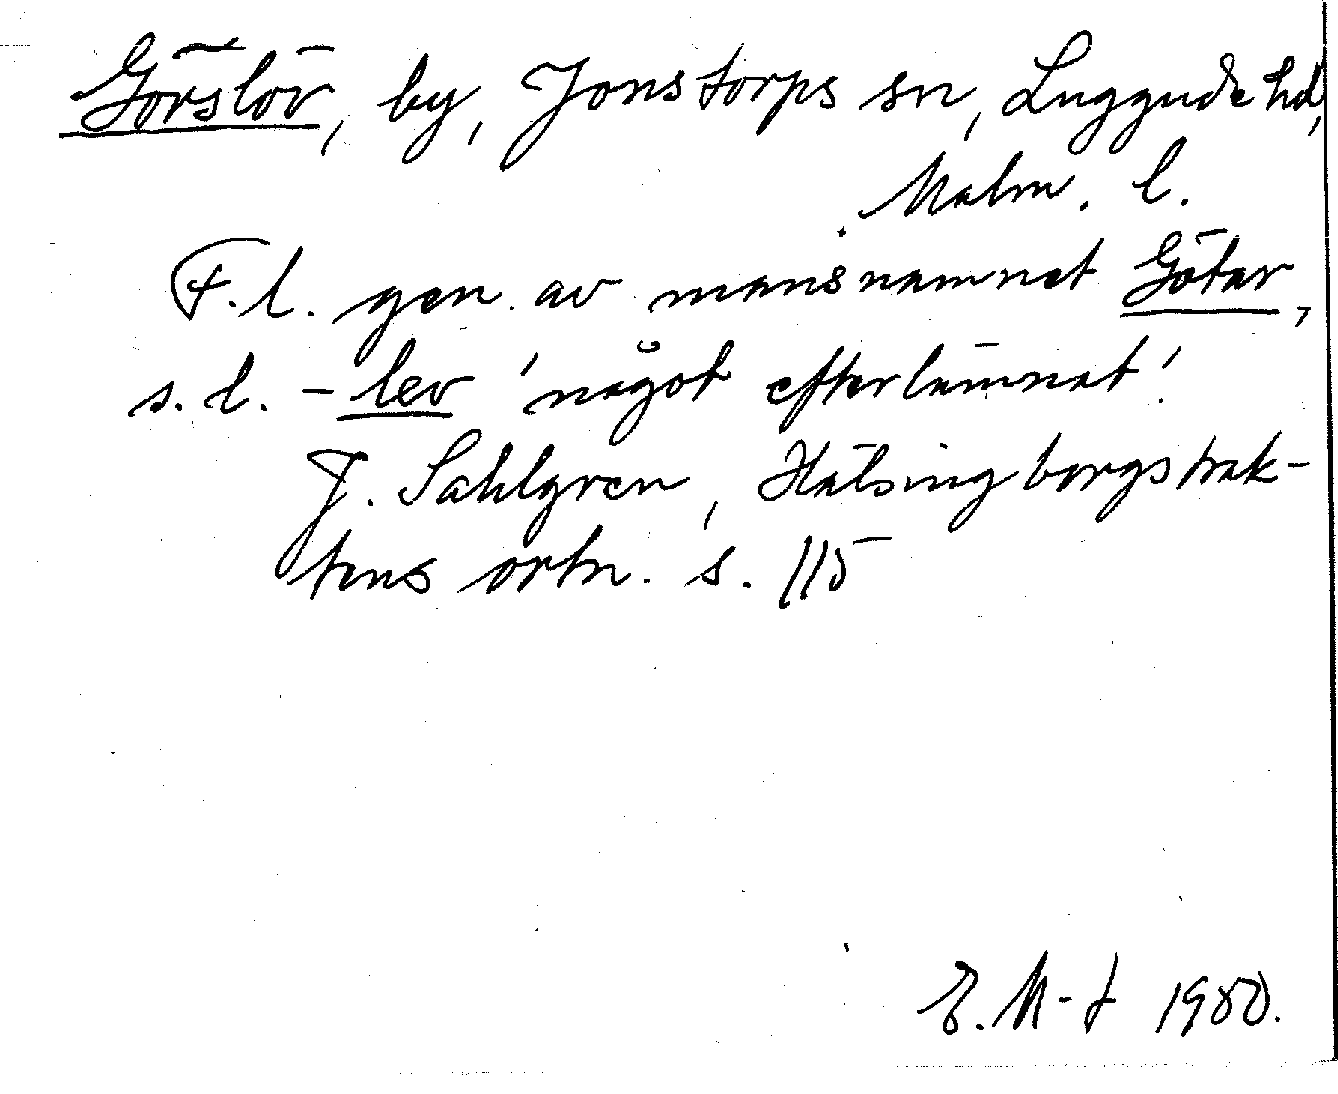 Görslöv, by, Jonstorps sn, Luggude hd,
Malm. l.
F.l. gen. av mansnamnet Götar,
s.l. -lev 'något efterlämnat'.
J. Sahlgren, Hälsingborgstrak-
tens ortn. s. 115
E. M-t 1980.